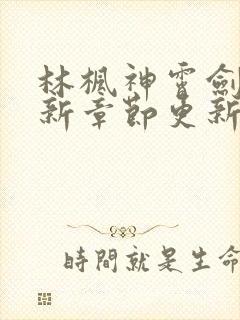 林楓神雷劍
新章節更新
時間就是生命